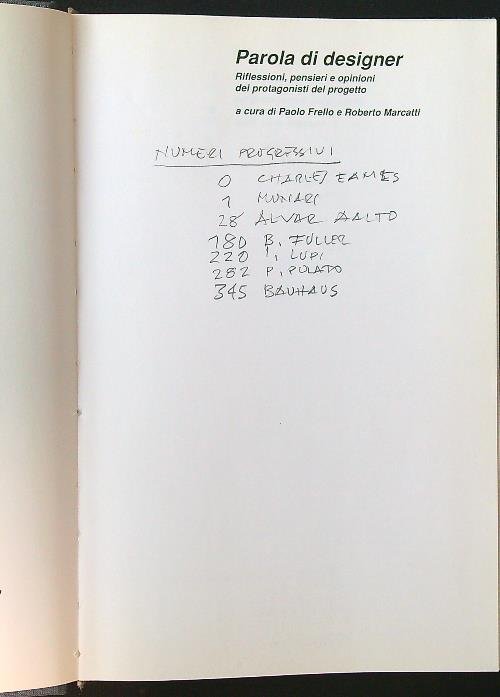 Parola di designer
Riflessioni, pensieri e opinioni
dei protagonisti del progetto
a cura di Paolo Frello e Roberto Marcatti
NUMERI PROGRESSIVI
0 CHARLES EAMES
1 MUNARI
28 ALVAR AALTO
180 B. FULLER
220 I. LUPI
282 P. POLATO
345 BAUHAUS